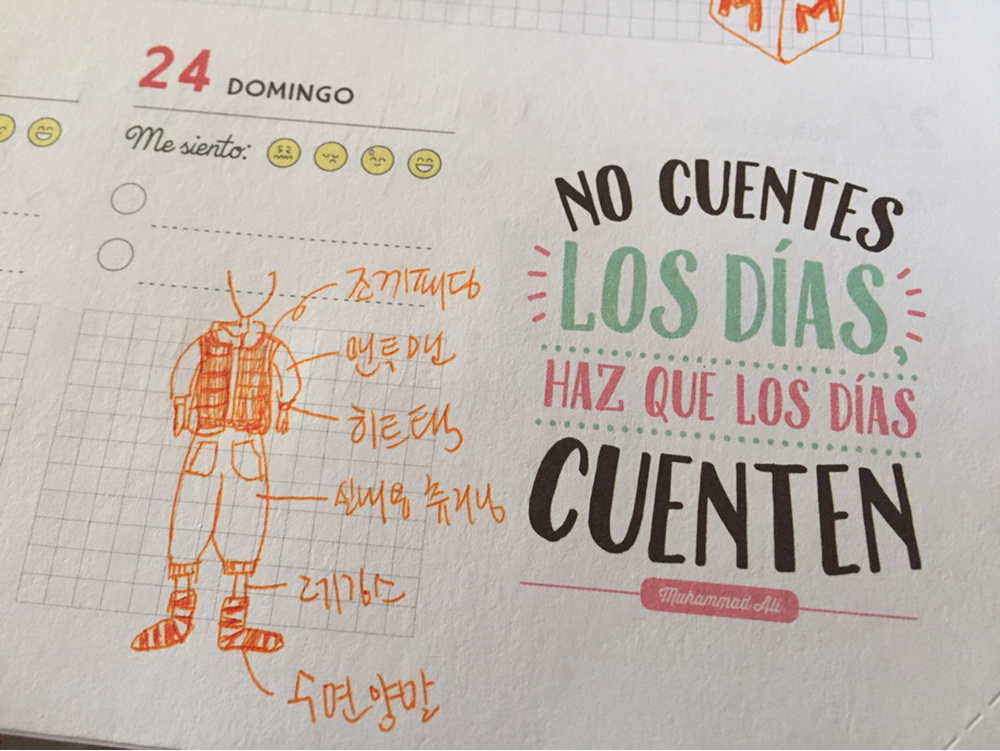 M M
24 DOMINGO
Me siento:
조끼패딩
맨투맨
히트텍
실내용 츄리닝
레깅스
수면양말
NO CUENTES
LOS DÍAS,
HAZ QUE LOS DÍAS
CUENTEN
Muhammad Ali